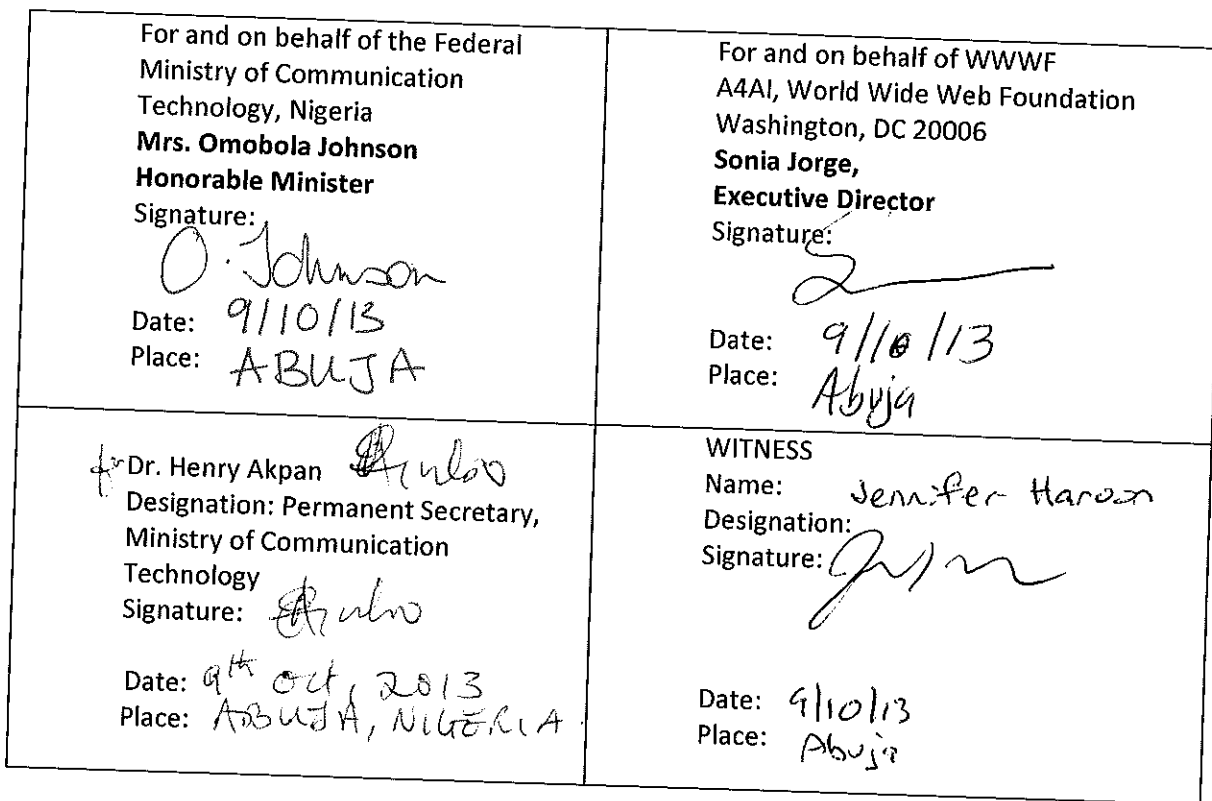 For and on behalf of the Federal
Ministry of Communication
Technology, Nigeria
Mrs. Omobola Johnson
Honorable Minister
Signature:
O. Johnson
Date: 9/10/13
Place: ABUJA
For and on behalf of WWWF
A4AI, World Wide Web Foundation
Washington, DC 20006
Sonia Jorge,
Executive Director
Signature:
Date: 9/10/13
Place: Abuja
for Dr. Henry Akpan
Designation: Permanent Secretary,
Ministry of Communication
Technology
Signature:
Date: 9th Oct, 2013
Place: ABUJA, NIGERIA
WITNESS
Name: Jennifer Haroon
Designation:
Signature:
Date: 9/10/13
Place: Abuja